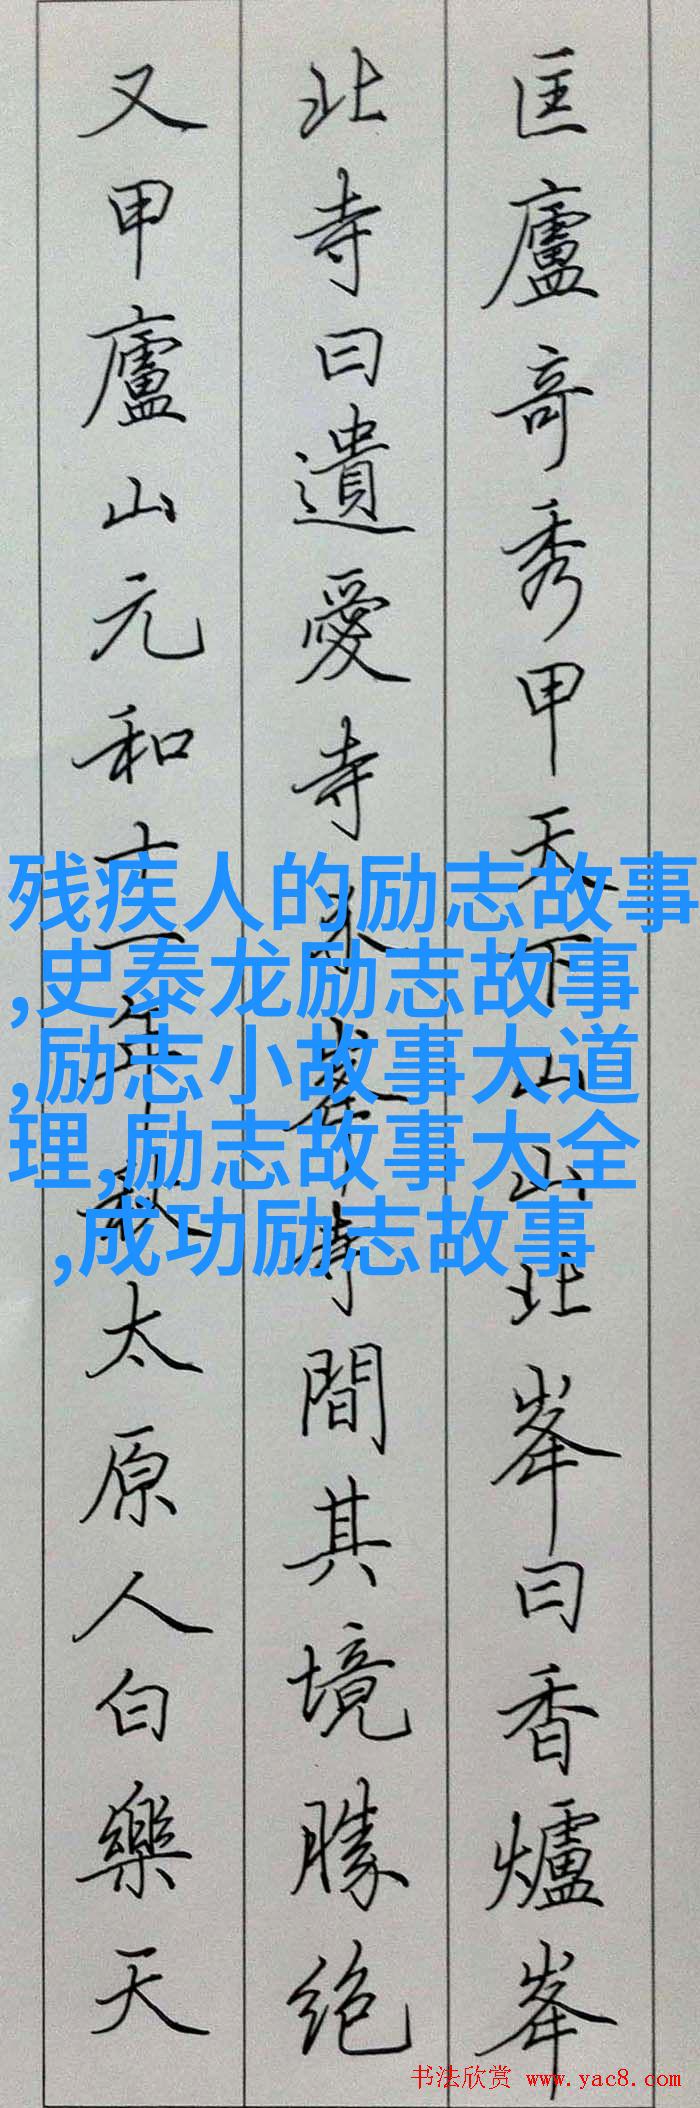 匡廬奇秀甲天下山山北峯曰香爐峯
北寺曰遺愛寺介峯寺間其境勝絶
又甲廬山元和十一年秋太原人白樂天
残疾人的励志故事
,史泰龙励志故事
,励志小故事大道
理,励志故事大全
,成功励志故事
书法欣赏 www.yac8.com